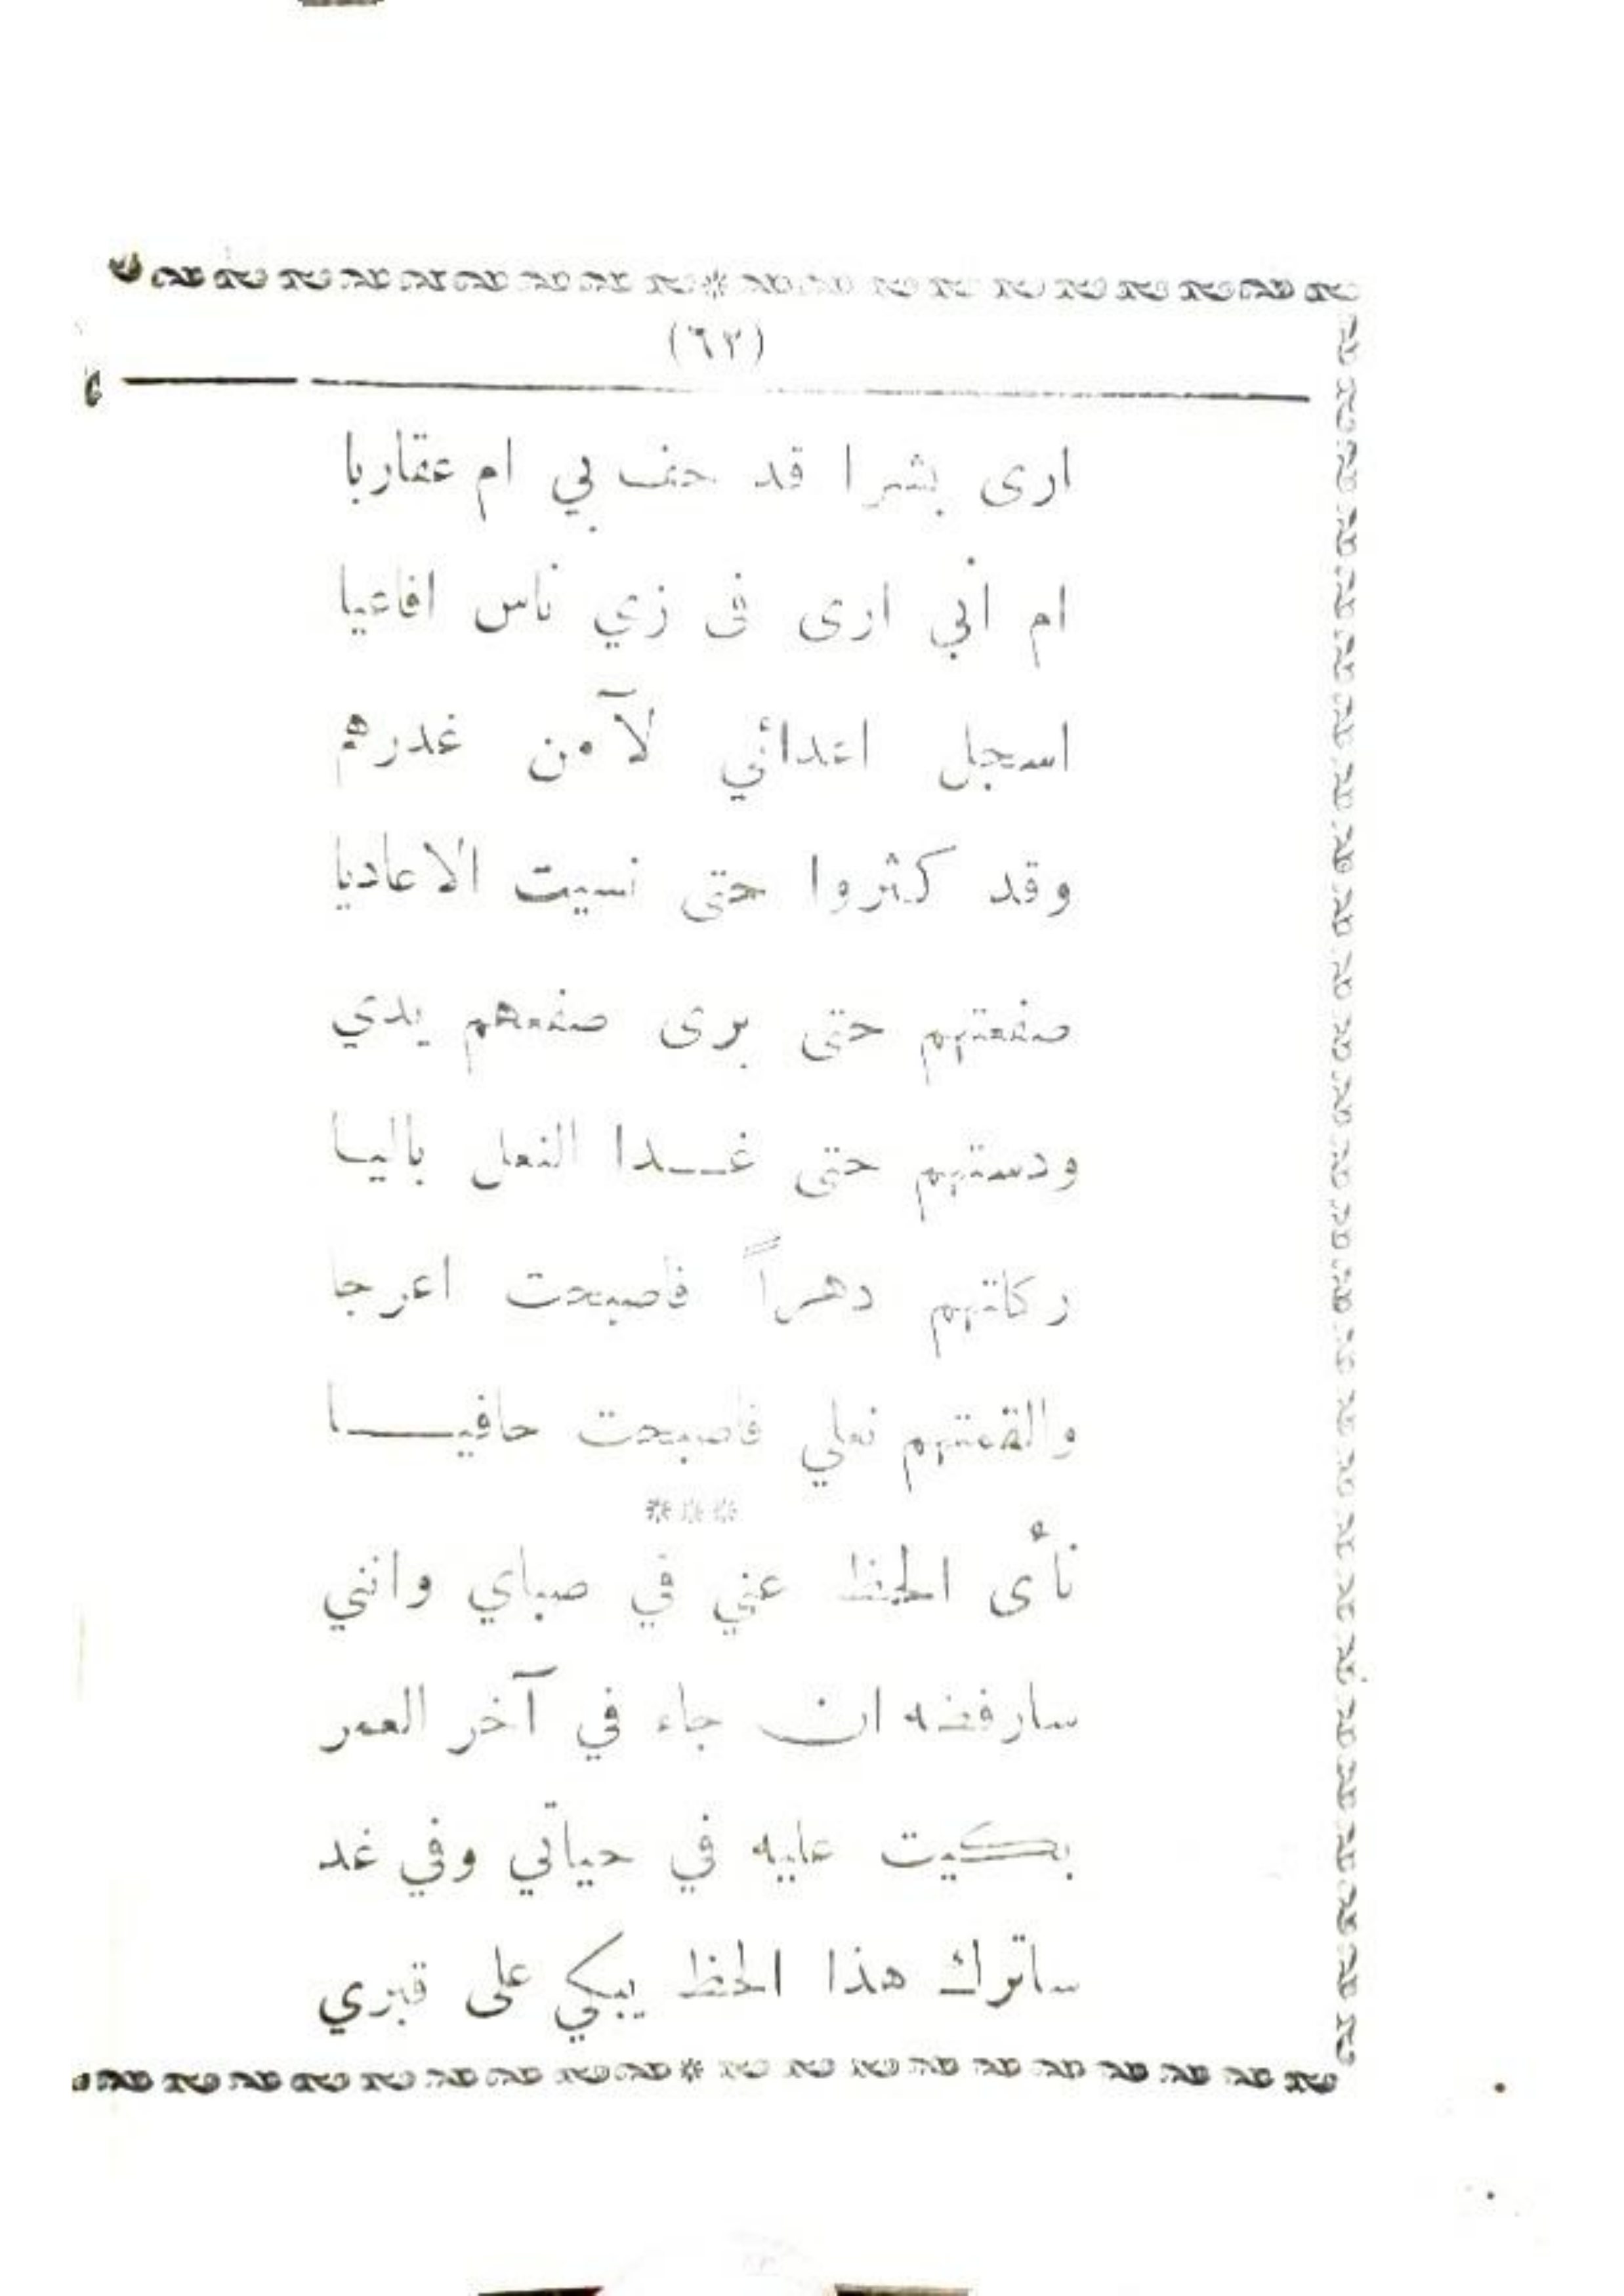 (٦٢)
ارى بشرا قد حف بي ام عقاربا
ام اني ارى فى زي ناس افاعيا
اسجل اعدائي لآمن غدرهم
وقد كثروا حتى نسيت الاعاديا
صفعتهم حتى برى صفعهم يدي
ودستهم حتى غدا النعل باليا
ركلتهم دهراً فاصبحت اعرجا
والقمتهم نعلي فاصبحت حافيا
***
نأى الحظ عني في صباي وانني
سارفضه ان جاء في آخر العمر
بكيت عليه في حياتي وفي غد
ساترك هذا الحظ يبكي على قبري